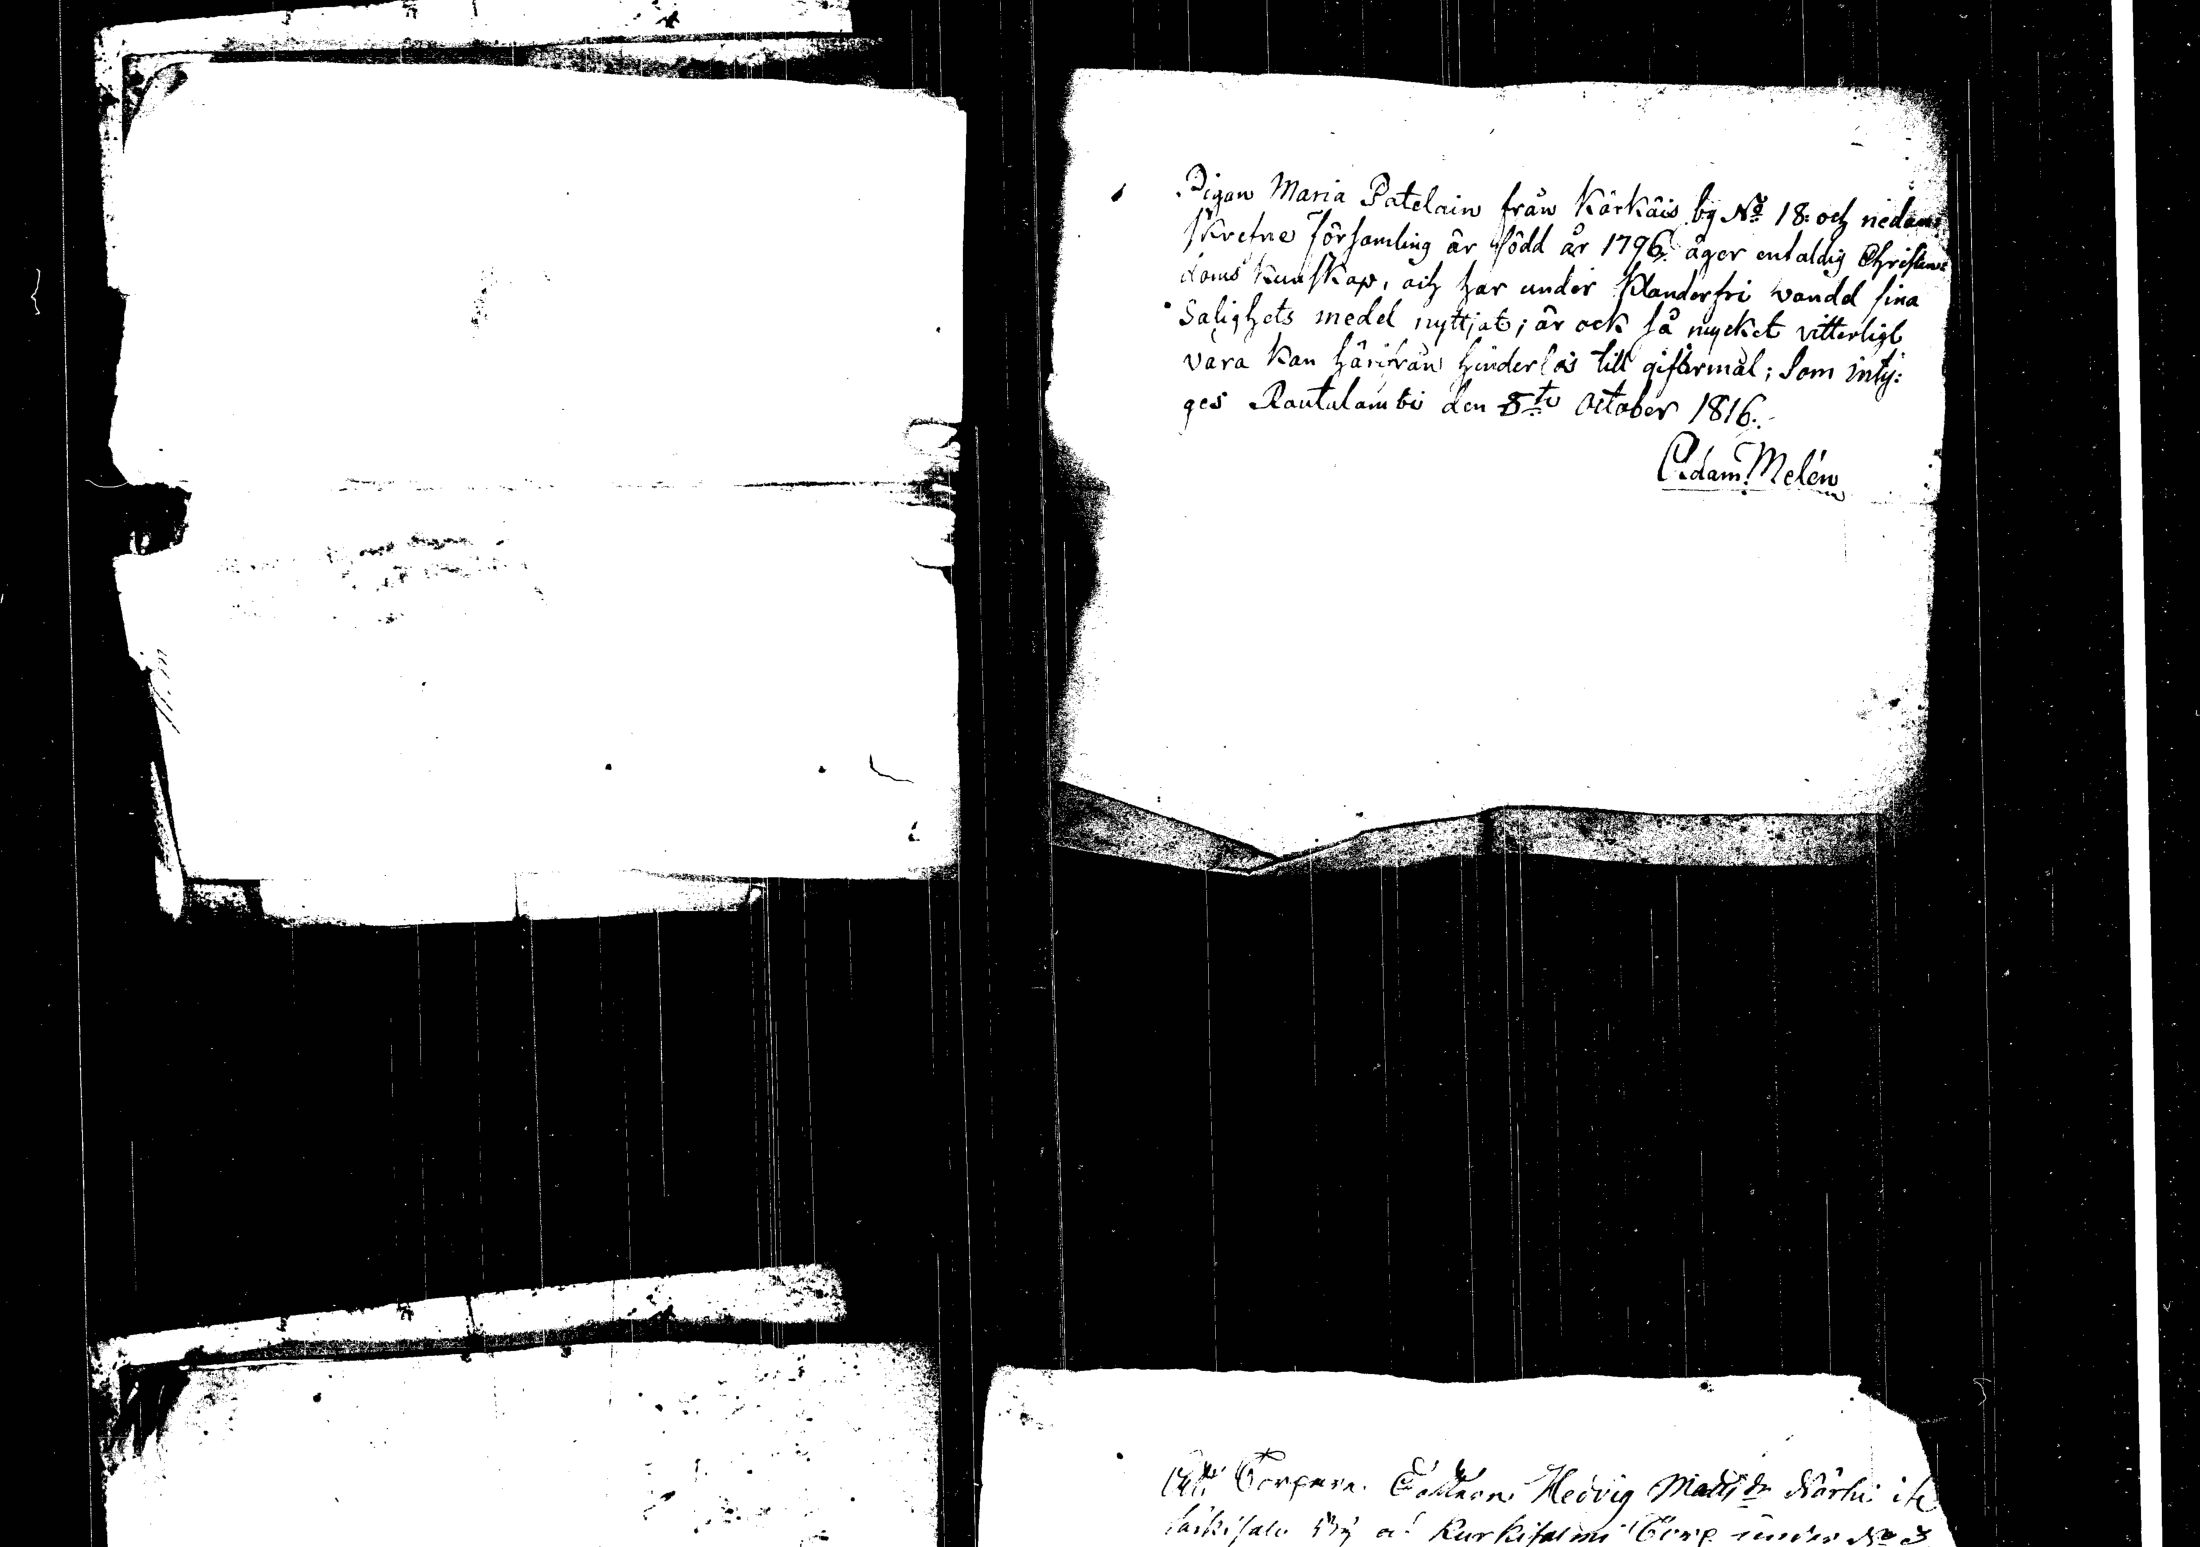 Pigan Maria Patelain från Kärkäis by No 18: och nedan:
skrefne Församling är född år 1796. äger enfaldig Christen:
doms kunskap, och har under klanderfri vandel sina
Salighets medel nyttjat; är ock så mycket vitterligt
vara kan härifrån hinderlös till giftermål; Som inty:
ges Rautalambi den 8de October 1816.
Adam Melén
Att Torpare Dottren Hedvig Matts dr
by Kurkisalmi Torp under No 3